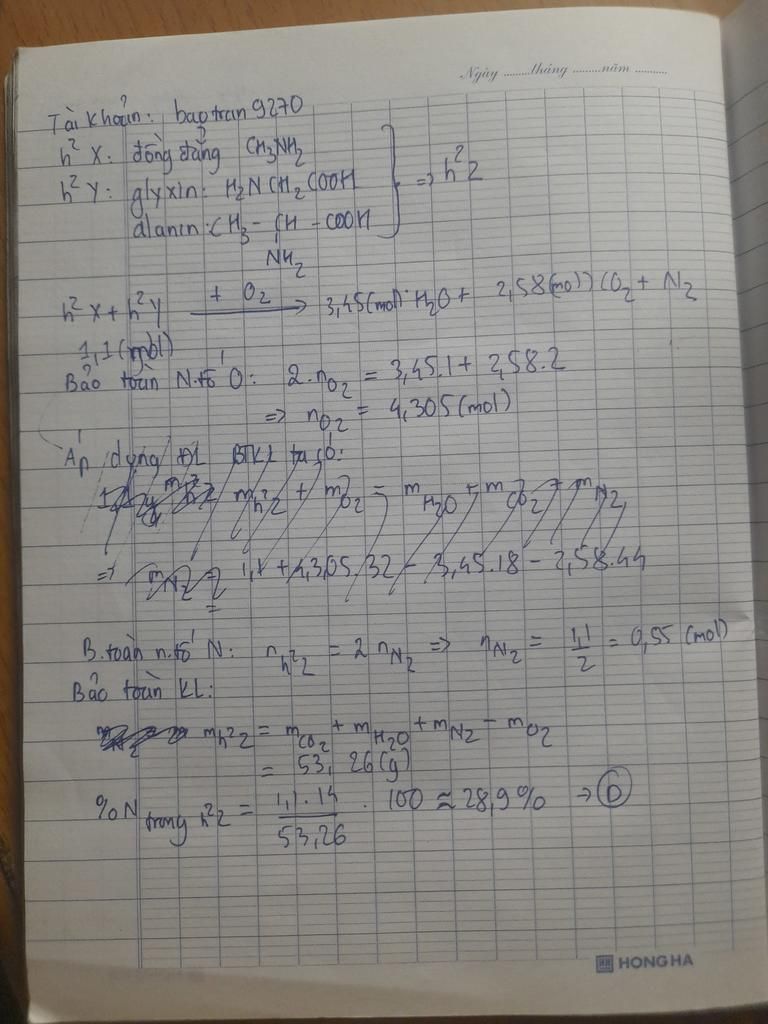 Ngày .........tháng .........năm ..........
Tài khoản: baotran9270
h² X: đồng đẳng CH3NH2
h² Y: glyxin: H2NCH2COOH } => h² Z
alanin: CH3 - CH - COOH
NH2
h² X + h² Y + O2 → 3,45(mol) H2O + 2,58(mol) CO2 + N2
1,1(mol)
Bảo toàn N.tố O: 2.nO2 = 3,45.1 + 2,58.2
=> nO2 = 4,305(mol)
Áp dụng ĐL BTKL ta có:
mh²Z + mO2 = mH2O + mCO2 + mN2
=> mN2 = 1,1 + 4,305.32 - 3,45.18 - 2,58.44
B.toàn n.tố N: nh²Z = 2nN2 => nN2 = 1,1/2 = 0,55 (mol)
Bảo toàn KL:
mh²Z = mCO2 + mH2O + mN2 - mO2
= 53,26(g)
%N trong h²Z = 1,1.14/53,26 . 100 ≈ 28,9% →
HONG HA